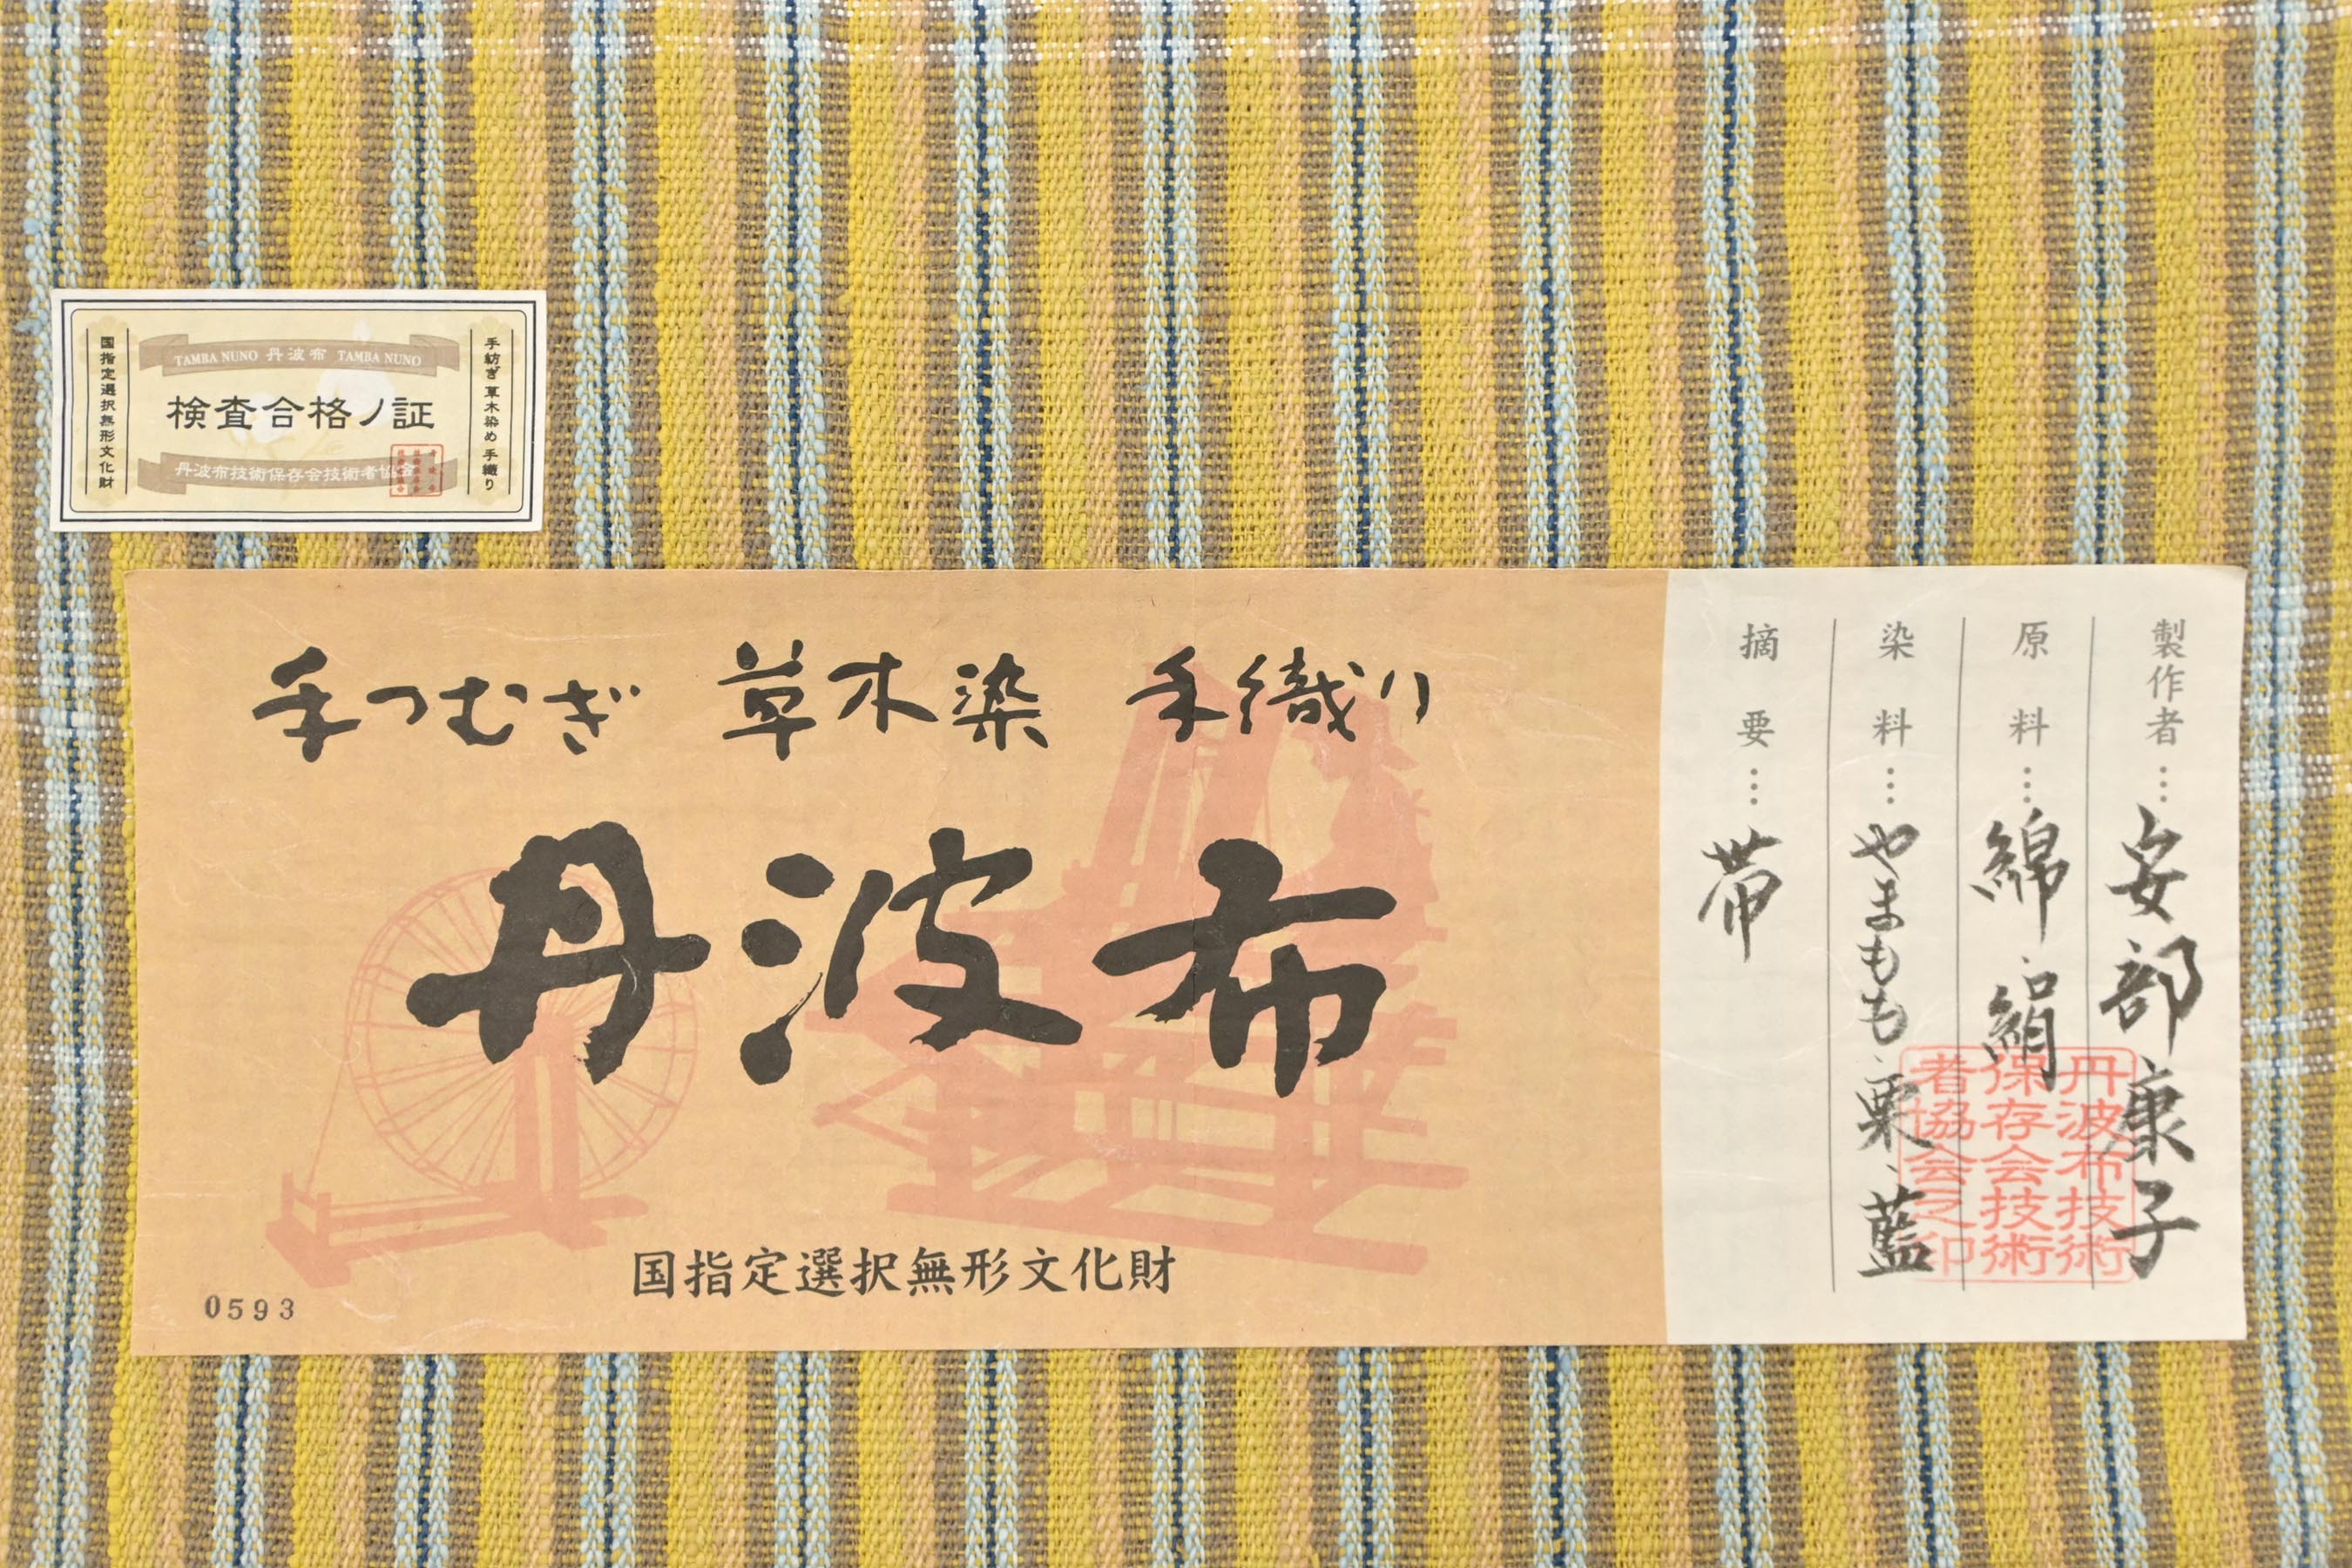 国指定選択無形文化財
TAMBA NUNO 丹波布 TAMBA NUNO
検査合格ノ証
丹波布技術保存会技術者協会
手紡ぎ 草木染め 手織り
手つむぎ 草木染 手織り
丹波布
国指定選択無形文化財
0593
製作者…安部康子
原料…綿、絹
染料…やまもも、栗、藍
摘要…帯
丹波布技術
保存会技術
者協会之印